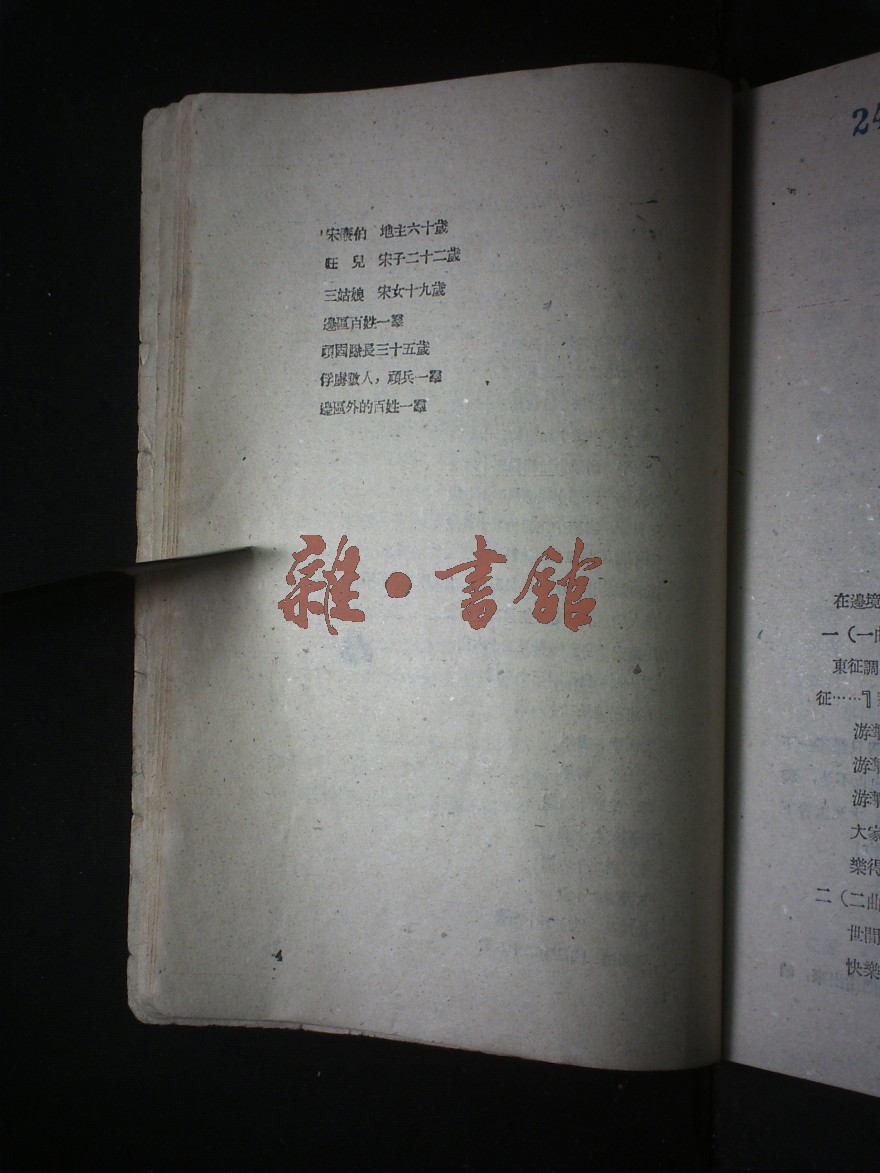 宋賡伯 地主六十歲
旺兒 宋子二十二歲
三姑娘 宋女十九歲
邊區百姓一羣
頑固隊長三十五歲
俘虜敵人，頑兵一羣
邊區外的百姓一羣
雜·書館
24
在邊境
一（一曲
東征調
征……
游擊
游擊
游擊
大家
樂得
二（二曲
世間
快樂